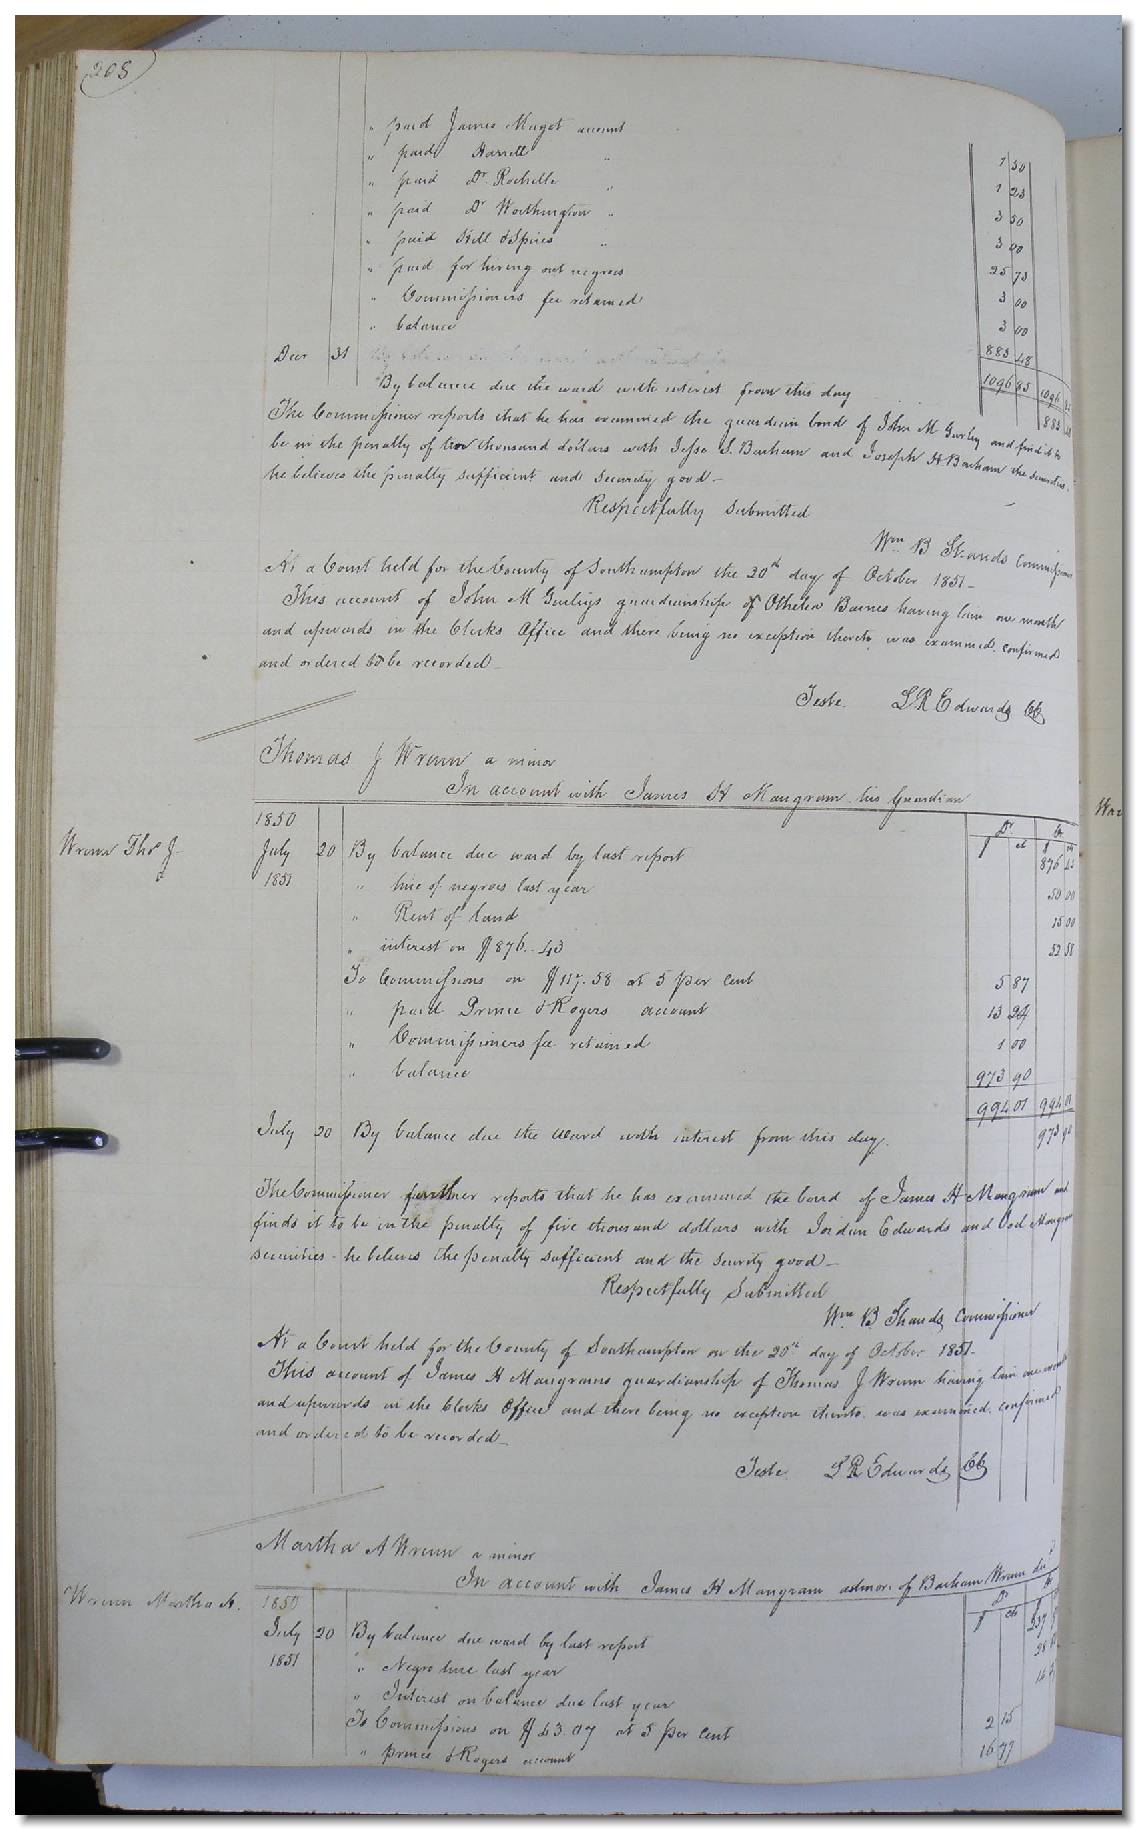 208
" paid James Maget account 1 50
" paid Harrell " 1 25
" paid Dr. Rochelle " 3 50
" paid Dr Worthington " 3 00
" paid Kell & Spiers " 25 73
" paid for hiring out negroes 3 00
" Commissioners fee retained 3 00
" balance 883 48
Decr 31 1096 85 1096 85
By balance due the ward with interest from this day 883 48
The Commissioner reports that he has examined the guardian bond of John M Gurley and find it to
be in the penalty of two thousand dollars with Jesse S. Barham and Joseph H Barham the securities.
he believes the penalty sufficient and security good -
Respectfully submitted
Wm B Shands Commissioner
At a Court held for the County of Southampton the 20th day of October 1851 -
This account of John M Gurleys guardianship of Othelia Barnes having lain one month
and upwards in the Clerks Office and there being no exception thereto, was examined, confirmed
and ordered to be recorded -
Teste. L R Edwards CC
Thomas J Wrenn a minor
In account with James H Mangram his Guardian
1850 Dr Cr
Wrenn Thos J July 20 By balance due ward by last report $ ct $ ct 876 43
1851 " hire of negroes last year 50 00
" Rent of land 15 00
" interest on $876..43 52 58
To Commissions on $117.58 at 5 per cent 5 87
" paid Prince & Rogers account 13 24
" Commissioners fee retained 1 00
" balance 973 90
994 01 994 01
July 20 By balance due the ward with interest from this day. 973 90
The Commissioner further reports that he has examined the bond of James H Mangram and
finds it to be in the penalty of five thousand dollars with Jordan Edwards and Mangram
securities - he believes the penalty sufficient and the security good -
Respectfully Submitted
Wm B Shands, Commissioner
At a Court held for the County of Southampton on the 20th day of October 1851 -
This account of James H Mangrams guardianship of Thomas J Wrenn having lain one month
and upwards in the Clerks Office and there being no exception thereto, was examined, confirmed
and ordered to be recorded -
Teste. L R Edwards CC
Martha A Wrenn a minor
In account with James H Mangram admor. of Barham Wrenn decd
Wrenn Martha A. 1850 Dr Cr
July 20 By balance due ward by last report $ cts $ 237
1851 " Negro hire last year 28
" Interest on balance due last year 14
To Commissions on $43.07 at 5 per cent 2 15
" Prince & Rogers account 16 77